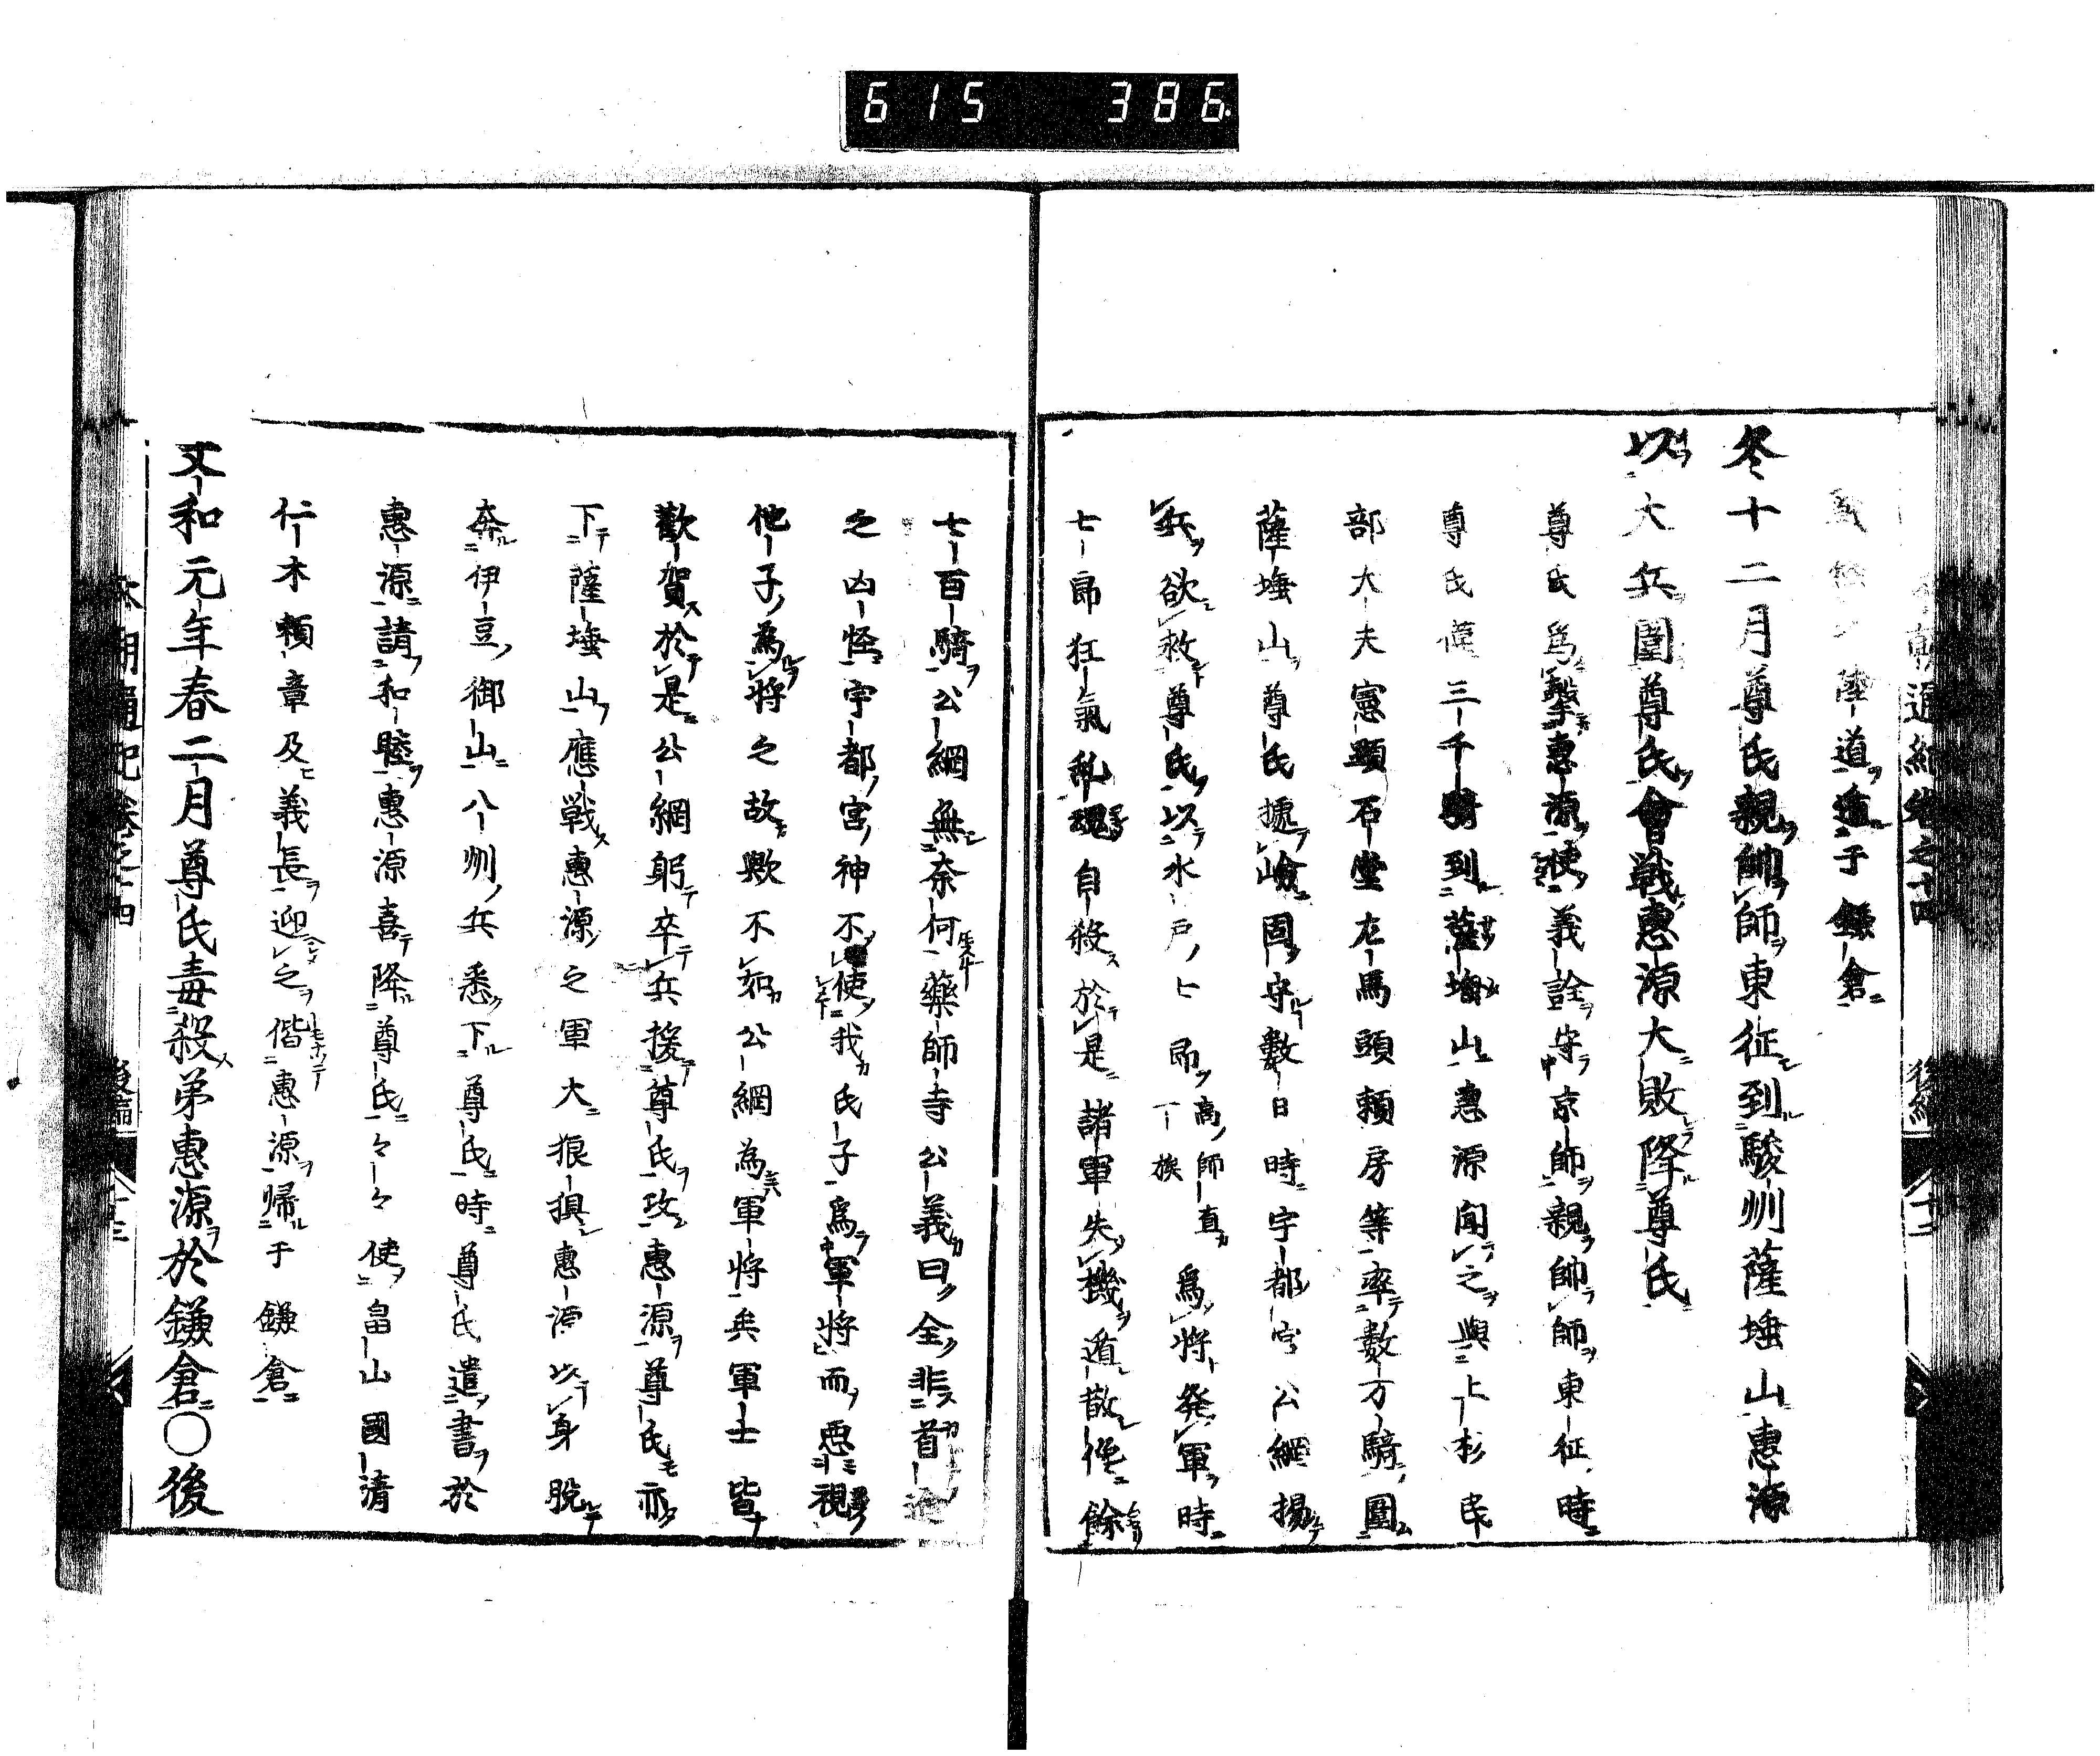 615 386
通紀卷之十四 後編 十二
陸道遁于鎌倉
冬十二月尊氏親帥師東征到駿州薩埵山惠源
以大兵圍尊氏會戰惠源大敗降尊氏
尊氏爲擊惠源使義詮守京師親帥師東征時
尊氏僅三千騎到薩埵山惠源聞之與上杉民
部大夫憲顯石堂左馬頭賴房等率數万騎圍
薩埵山尊氏據嶮固守數日時宇都宮公綱揚
兵欲救尊氏以水戶七郎高師直一族爲將発軍時
七郎狂氣乱魂自殺於是諸軍失機遁散僅餘
七百騎公綱無奈何藥師寺公義曰全非首途
之凶怪宇都宮神不使我氏子爲軍將而惡視
他子為將之故歟不如公綱為軍將矣軍士皆
歡賀於是公綱躬卒兵援尊氏攻惠源尊氏亦
下薩埵山應戦惠源之軍大狼狽惠源以身脫
奔伊豆御山八州兵悉下尊氏時尊氏遣書於
惠源請和睦惠源喜降尊氏々々使畠山國清
仁木賴章及義長迎之偕惠源帰于鎌倉
文和元年春二月尊氏毒殺弟惠源於鎌倉○後
本朝通紀卷之十四 後編 十三